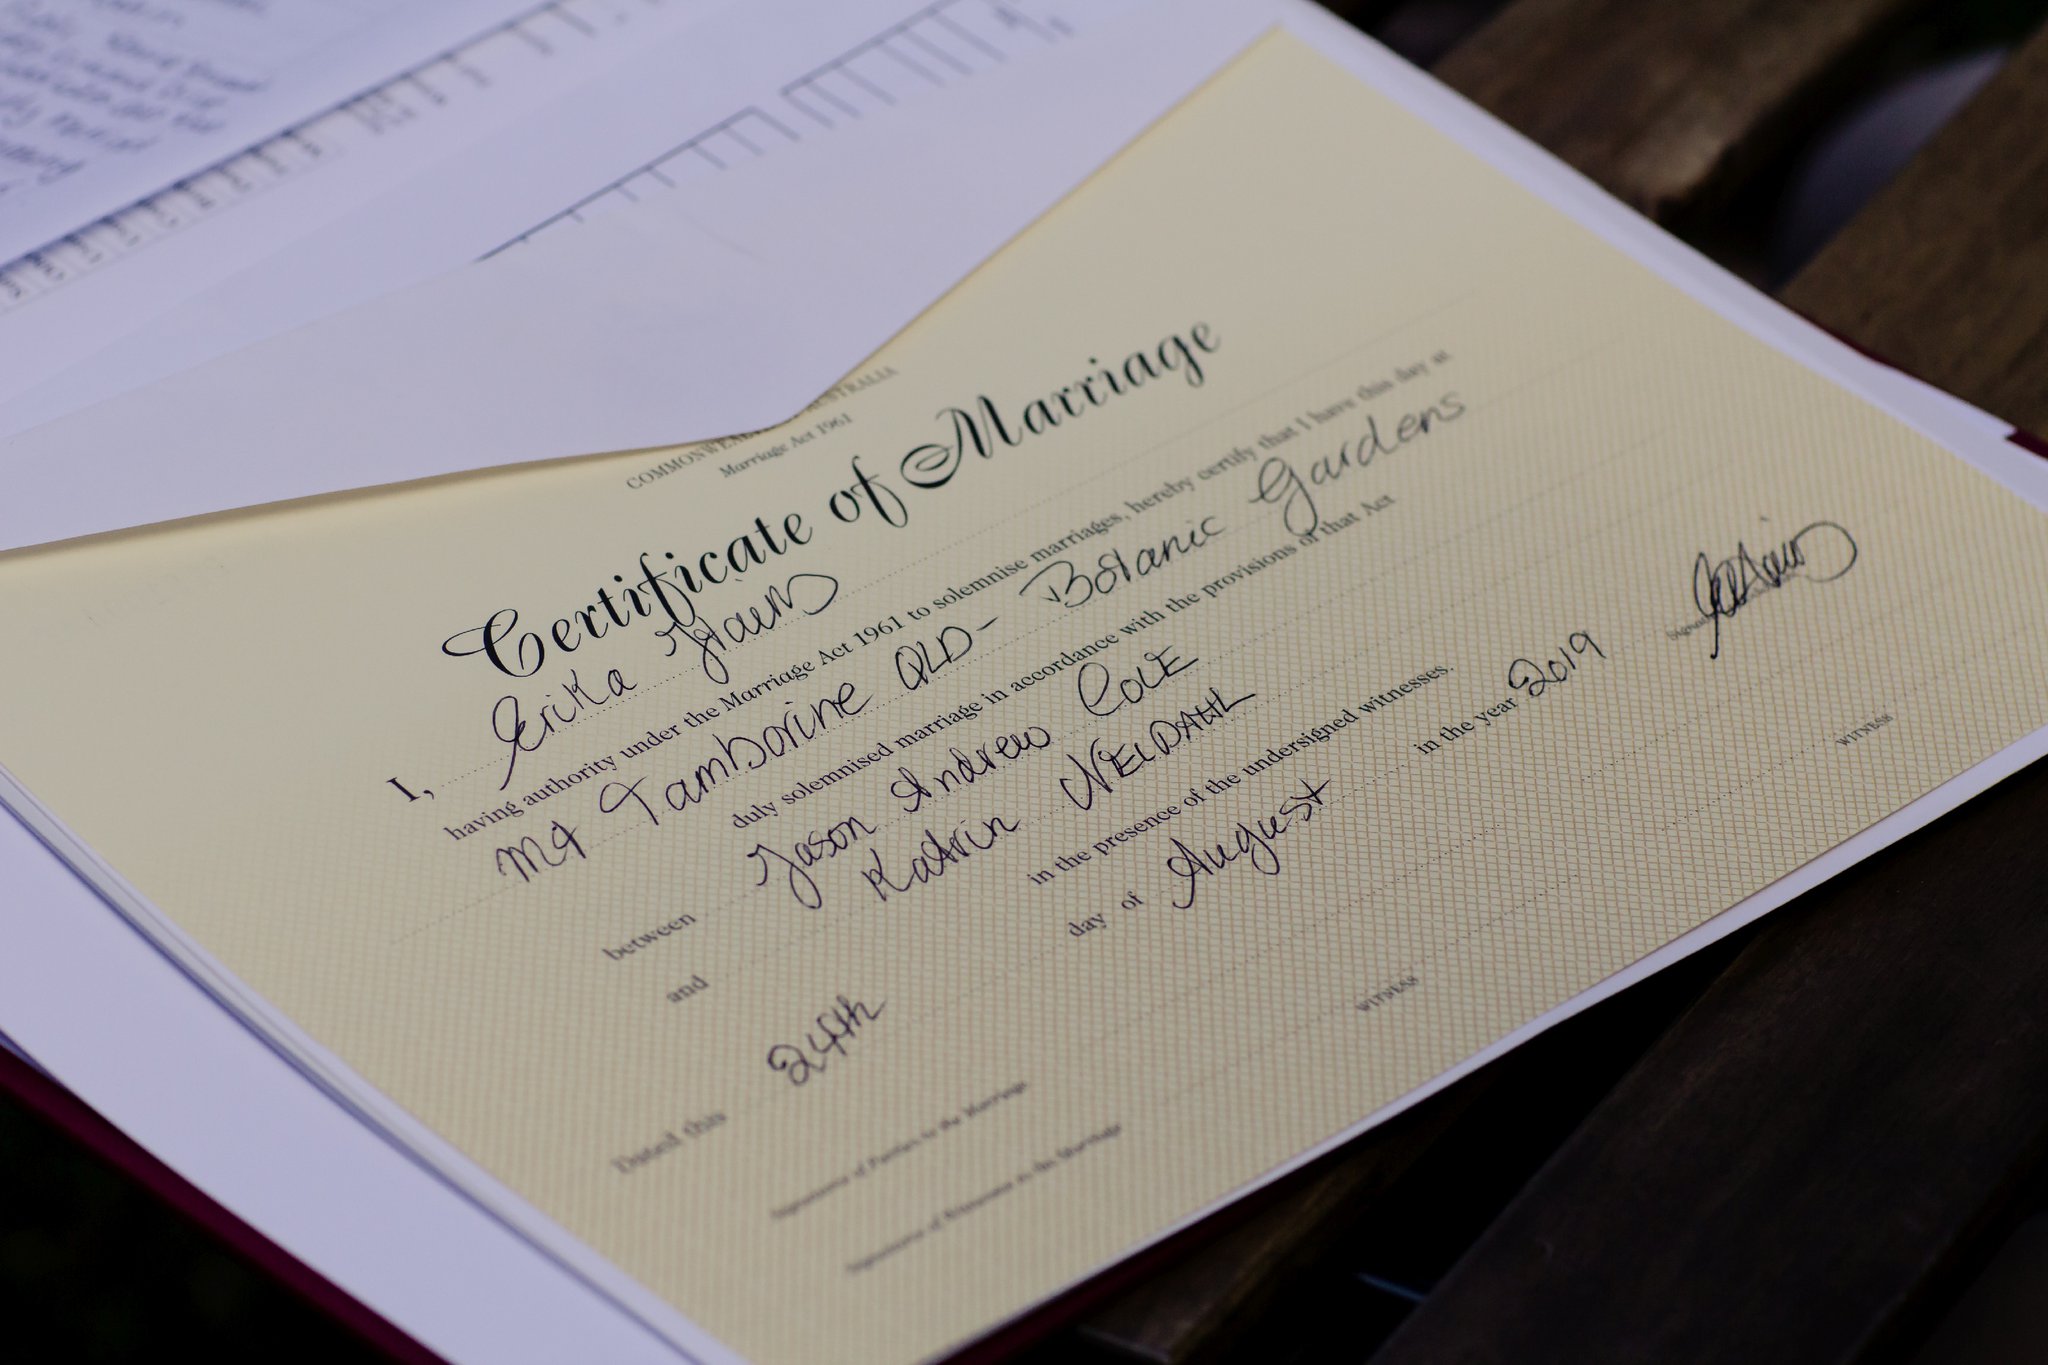 COMMONWEALTH AUSTRALIA
Marriage Act 1961
Certificate of Marriage
I, Erika
having authority under the Marriage Act 1961 to solemnise marriages, hereby certify that I have this day at
Mt Tamborine QLD - Botanic Gardens
duly solemnised marriage in accordance with the provisions of that Act
between Jason Andrew COLE
and Katrin NEIDAHL
in the presence of the undersigned witnesses.
Dated this 24th day of August in the year 2019
Signature of Parties to the Marriage
WITNESS WITNESS
Signature of Witnesses to the Marriage